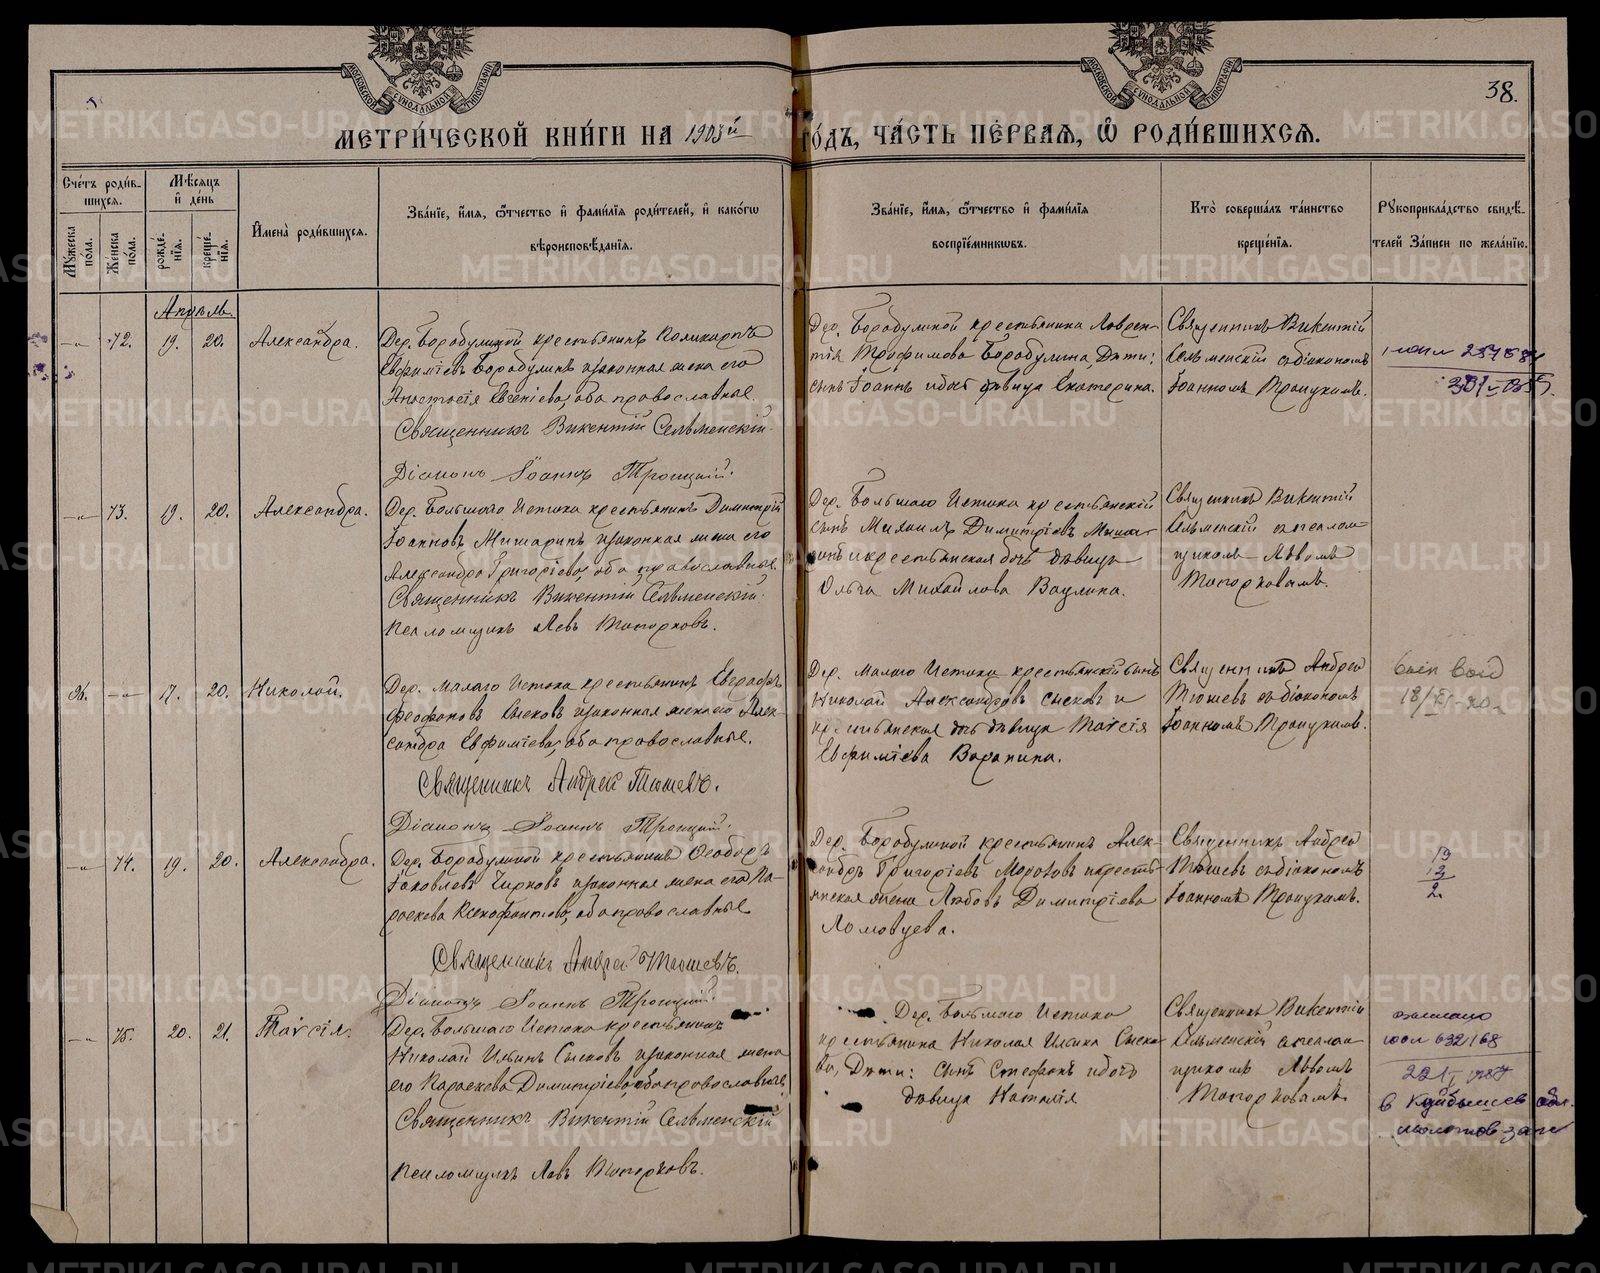 38.
МЕТРИ́ЧЕСКОЙ КНИ́ГИ НА 1903й ГО́ДЪ, ЧА́СТЬ ПЕ́РВАЯ, Ѿ РОДИ́ВШИХСЯ.
Сче́тъ роди́вшихся.
Мꙋ́жеска по́ла.
Же́нска по́ла.
Мѣ́сяцъ и҆ де́нь
рожде́нїя.
креще́нїя.
И҆мена̀ роди́вшихся.
Зва́нїе, и҆́мя, ѻ҆́тчество и҆ фами́лїя роди́телей, и҆ како́гѡ
вѣроисповѣ́данїя.
Зва́нїе, и҆́мя, ѻ҆́тчество и҆ фами́лїя
воспрїе́мникѡвъ.
Кто̀ соверша́лъ та́инство
креще́нїя.
Рꙋкоприкла́дство свидѣ́-
телей За́писи по жела́нїю.
Апрѣль.
72. 19. 20. Александра.
Дер. Бородулиной крестьянинъ Поликарпъ
Евфиміевъ Бородулинъ и законная жена его
Анастасія Евгеніева, оба православные.
Священникъ Викентій Сельменскій.
Діаконъ Іоаннъ Троицкій.
Дер. Бородулиной крестьянина Лаврен-
тія Трофимова Бородулина, Дѣти:
сынъ Іоаннъ и дочь дѣвица Екатерина.
Священникъ Викентій
Сельменскій съ діакономъ
Іоанномъ Троицкимъ.
73. 19. 20. Александра.
Дер. Большаго Истока крестьянинъ Димитрій
Іоанновъ Мишаринъ и законная жена его
Александра Григоріева, оба православные.
Священникъ Викентій Сельменскій.
Псаломщикъ Левъ Топорковъ.
Дер. Большаго Истока крестьянскій
сынъ Михаилъ Димитріевъ Миша-
ринъ и крестьянская дочь дѣвица
Ольга Михайлова Ваулина.
Священникъ Викентій
Сельменскій съ псалом-
щикомъ Львомъ
Топорковымъ.
36. 17. 20. Николай.
Дер. Малаго Истока крестьянинъ
Феофановъ Сысковъ и законная жена его Алек-
сандра Евфиміева, оба православные.
Священникъ Андрей Тюшевъ.
Діаконъ Іоаннъ Троицкій.
Дер. Малаго Истока крестьянскій сынъ
Николай Александровъ Сысковъ и
крестьянская дочь дѣвица Таисія
Евфиміева Воронина.
Священникъ Андрей
Тюшевъ съ діакономъ
Іоанномъ Троицкимъ.
74. 19. 20. Александра.
Дер. Бородулиной крестьянинъ Феодоръ
Іаковлевъ Чирковъ и законная жена его Па-
раскева Ксенофонтова, оба православные.
Священникъ Андрей Тюшевъ.
Діаконъ Іоаннъ Троицкій.
Дер. Бородулиной крестьянинъ Алек-
сандръ Григоріевъ Морозовъ и кресть-
янская жена Любовь Димитріева
Ломовцева.
Священникъ Андрей
Тюшевъ съ діакономъ
Іоанномъ Троицкимъ.
19
12
2
75. 20. 21. Таисія.
Дер. Большаго Истока крестьянинъ
Николай Ильинъ Сысковъ и законная жена
его Параскева Димитріева, оба православные.
Священникъ Викентій Сельменскій
Псаломщикъ Левъ Топорковъ.
Дер. Большаго Истока
крестьянина Николая Ильина Сыско-
ва, Дѣти: сынъ Стефанъ и дочь
дѣвица Наталія
Священникъ Викентій
Сельменскій съ псалом-
щикомъ Львомъ
Топорковымъ
632168
в Куйбышев обл.